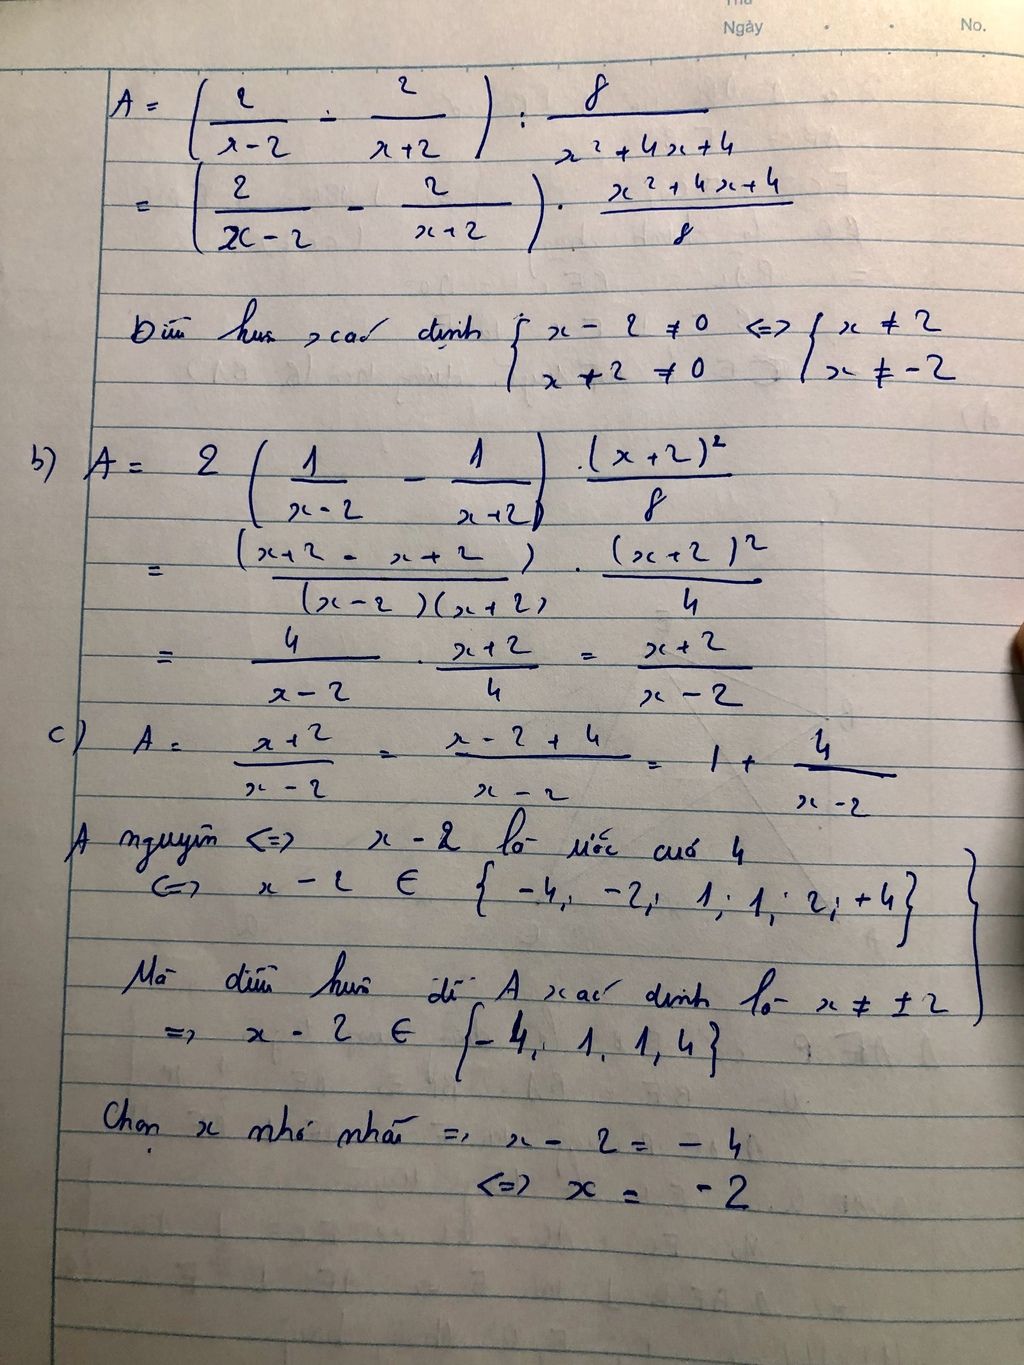 Thứ
Ngày . . No.
A = (2/(x-2) - 2/(x+2)) : 8/(x² + 4x + 4)
= (2/(x-2) - 2/(x+2)) . (x² + 4x + 4)/8
Điều kiện xác định { x - 2 ≠ 0 <=> { x ≠ 2
x + 2 ≠ 0 x ≠ -2
b) A = 2 (1/(x-2) - 1/(x+2)) . (x+2)²/8
= (x+2 - x + 2)/((x-2)(x+2)) . (x+2)²/4
= 4/(x-2) . (x+2)/4 = (x+2)/(x-2)
c) A = (x+2)/(x-2) = (x-2+4)/(x-2) = 1 + 4/(x-2)
A nguyên <=> x - 2 là ước của 4
<=> x - 2 ∈ {-4; -2; 1; 1; 2; +4}
Mà điều kiện để A xác định là x ≠ ±2
=> x - 2 ∈ {-4, 1, 1, 4}
Chọn x nhỏ nhất => x - 2 = -4
<=> x = -2